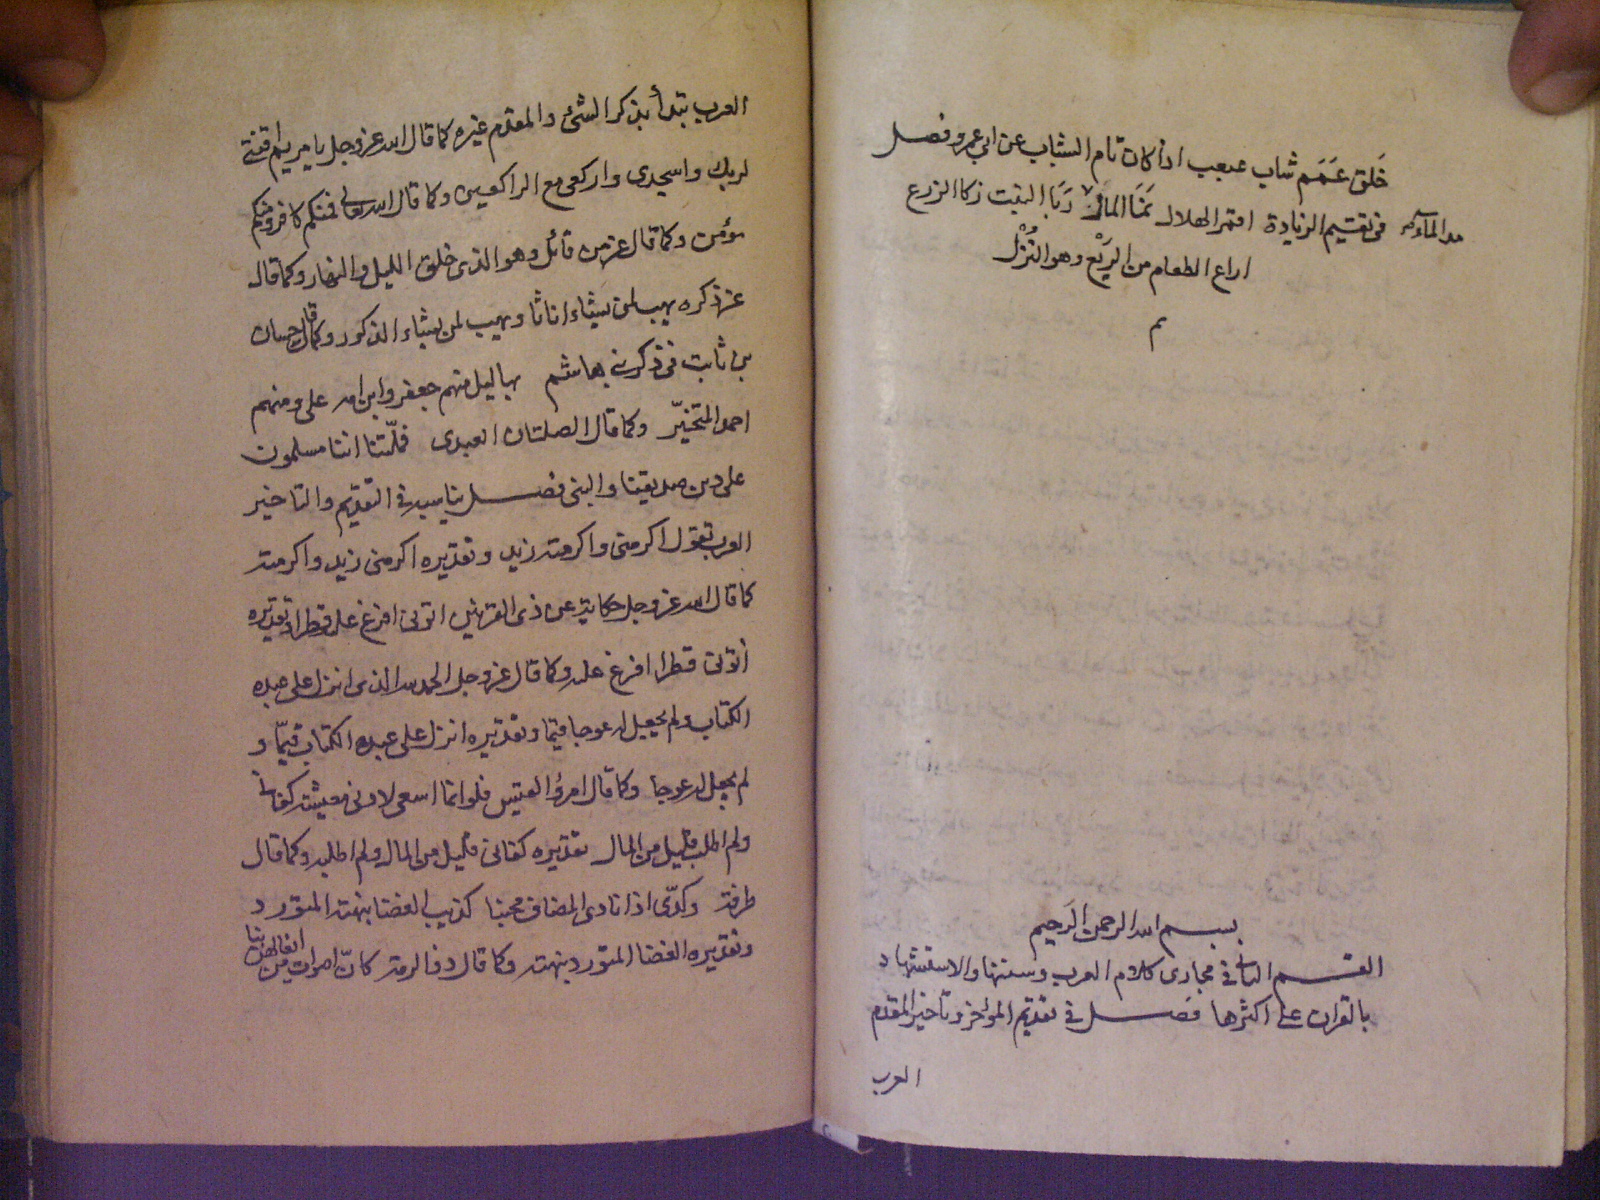 خَلق عَمَم شاب عبعب اذا كان تام الشباب عن ابي عمرو فصل
في تقسيم الزيادة اقمر الهلال نَمَا المال رَبَا النبت زكا الزرع
مد الماء
اراع الطعام من الرَيْع وهو النُزْل
م
بسم الله الرحمن الرَحيم
القسم الثاني في مجاري كلام العرب وسننها والاستشهاد
بالقران على اكثرها فصل في تقديم المؤخر وتاخير المقدم
العرب
العرب تبتدأ بذكر الشئ والمقدم غيره كما قال الله عز وجل يا مريم اقنتي
لربك واسجدي واركعي مع الراكعين وكما قال الله تعالى فمنكم كافر ومنكم
مؤمن وكما قال عز من قائل وهو الذي خلق الليل والنهار وكما قال
عز ذكره يهب لمن يشاء اناثا ويهب لمن يشاء الذكور وكما قال حسان
بن ثابت في ذكر بني هاشم بهاليل منهم جعفر وابن امه علي ومنهم
احمد المتخيّر وكما قال الصلتان العبدي فملّتنا اننا مسلمون
على دين صديقنا والنبي فصل يناسبه في التقديم والتاخير
العرب تقول اكرمني واكرمته زيد وتقديره اكرمني زيد واكرمته
كما قال الله عز وجل حكاية عن ذي القرنين اتوني افرغ عليه قطرا تقديره
اتوني قطرا افرغ عليه وكما قال عز وجل الحمد لله الذي انزل على عبده
الكتاب ولم يجعل له عوجا قيما وتقديره انزل على عبده الكتاب قيّما و
لم يجعل له عوجا وكما قال امرؤ القيس فلو انما اسعى لادنى معيشة كفاني
ولم اطلب قليل من المال تقديره كفاني قليل من المال ولم اطلبه وكما قال
طرفة وكرّى اذا نادى المضاف محنبا كذيب الغضا نبهته المتورد
وتقديره الغضا المتورد نبهته وكما قال ذو الرمة كانّ اصوات من ايغالهن بنا